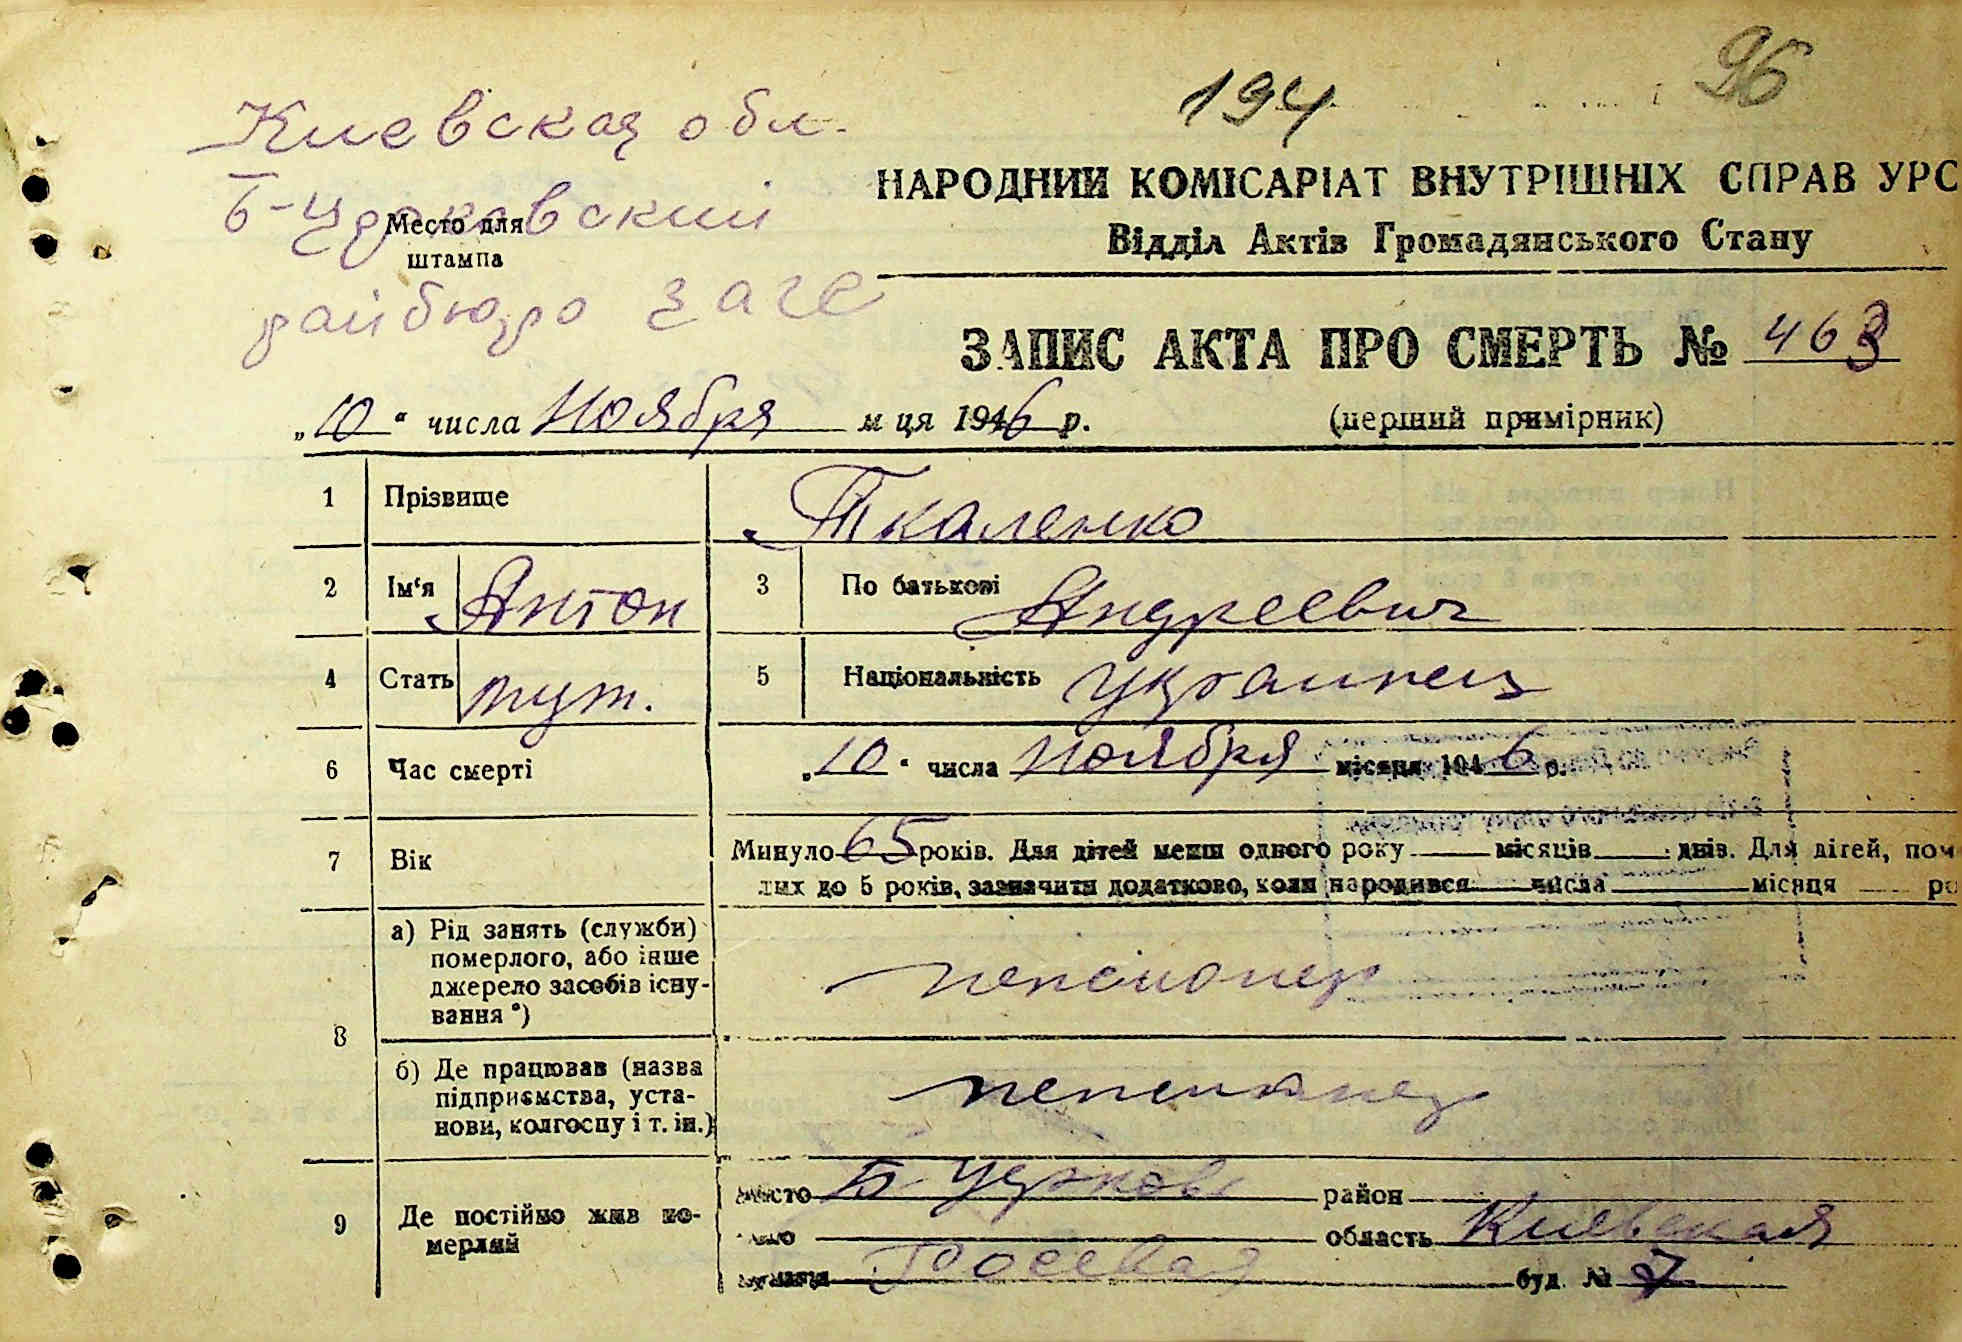 194
96
Киевская обл.
Б-Церковский
Место для
штампа
райбюро загс
НАРОДНИЙ КОМІСАРІАТ ВНУТРІШНІХ СПРАВ УРС
Відділ Актів Громадянського Стану
ЗАПИС АКТА ПРО СМЕРТЬ № 463
„10“ числа Ноября м ця 1946 р. (перший примірник)
1 Прізвище Ткаленко
2 Ім‘я Антон 3 По батькові Андреевич
4 Стать муж. 5 Національність украинец
6 Час смерті „10“ числа Ноября місяця 1946 р.
7 Вік Минуло 65 років. Для дітей менш одного року місяців днів. Для дітей, пом
лых до 5 років, зазначити додатково, коли народився числа місяця ро
8 а) Рід занять (служби)
померлого, або інше
джерело засобів існу-
вання*)
пенсионер
б) Де працював (назва
підприємства, уста-
нови, колгоспу і т. ін.)
пенсионер
9 Де постійно жив по-
мерлий
місто Б Церковь район
область Киевская
вулиця буд. № 7